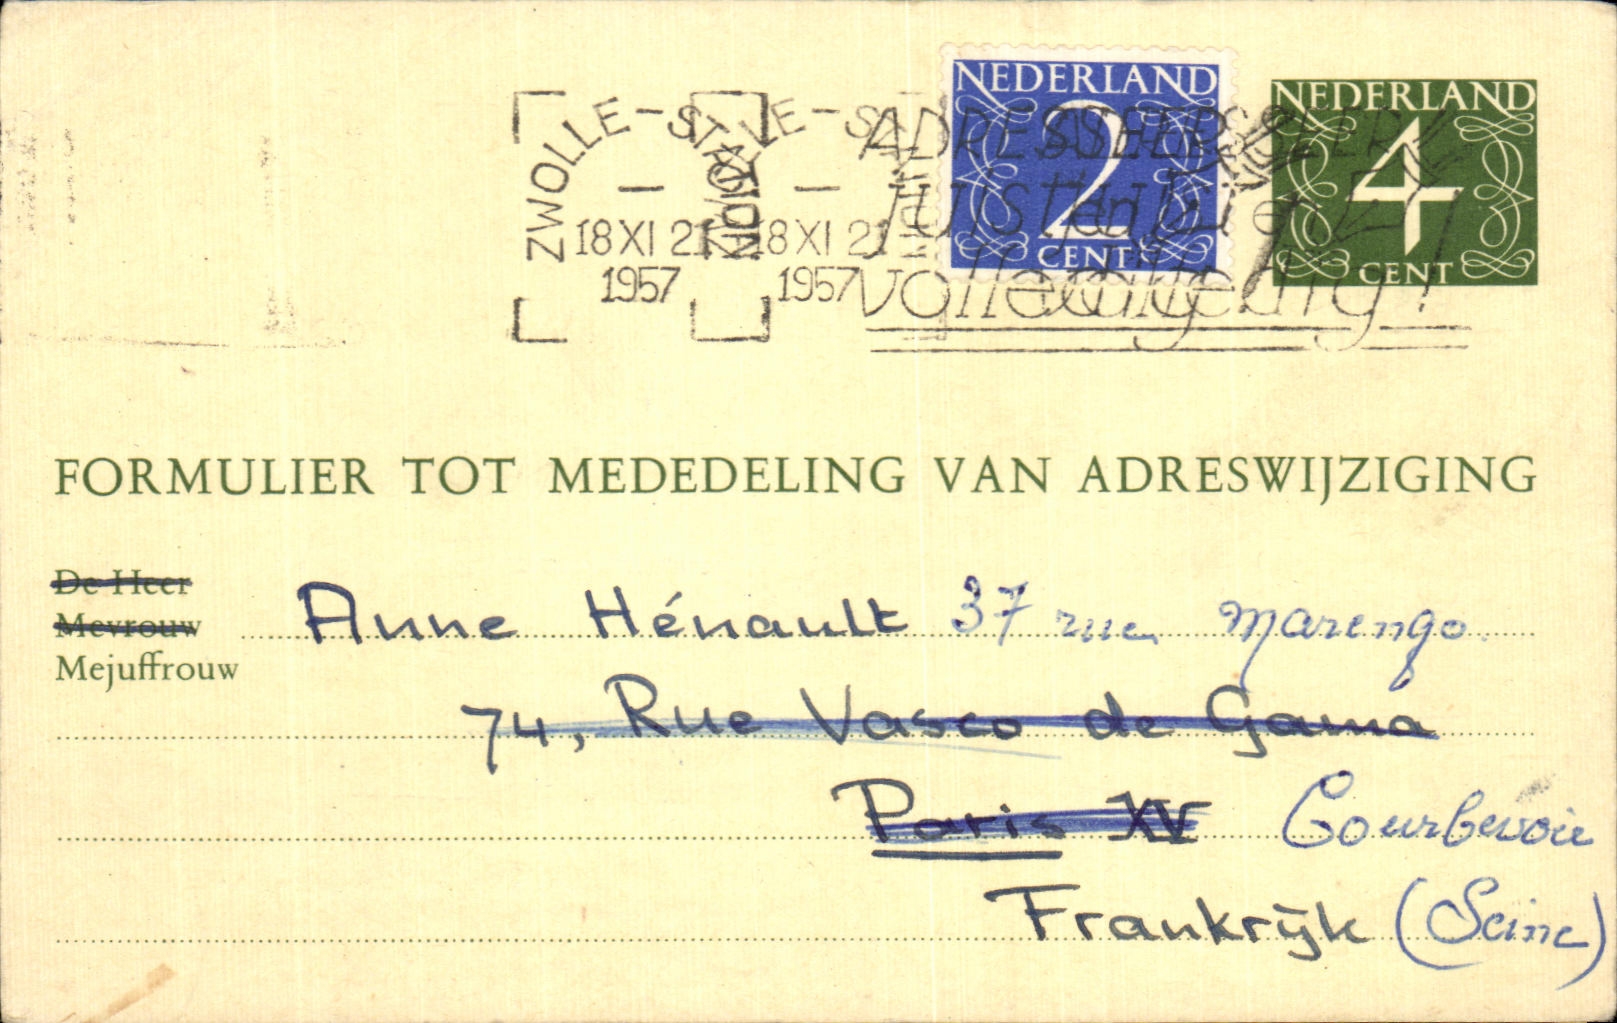 ZWOLLE-STATION
18 XI 21
1957
18 XI 21
1957
ADRESSEER
JUIST en
volledig!
NEDERLAND
2
CENT
NEDERLAND
4
CENT
FORMULIER TOT MEDEDELING VAN ADRESWIJZIGING
De Heer
Mevrouw
Mejuffrouw
Anne Hénault 37 rue Marengo.
74, Rue Vasco de Gama
Paris XV Courbevoie
Frankrijk (Seine)